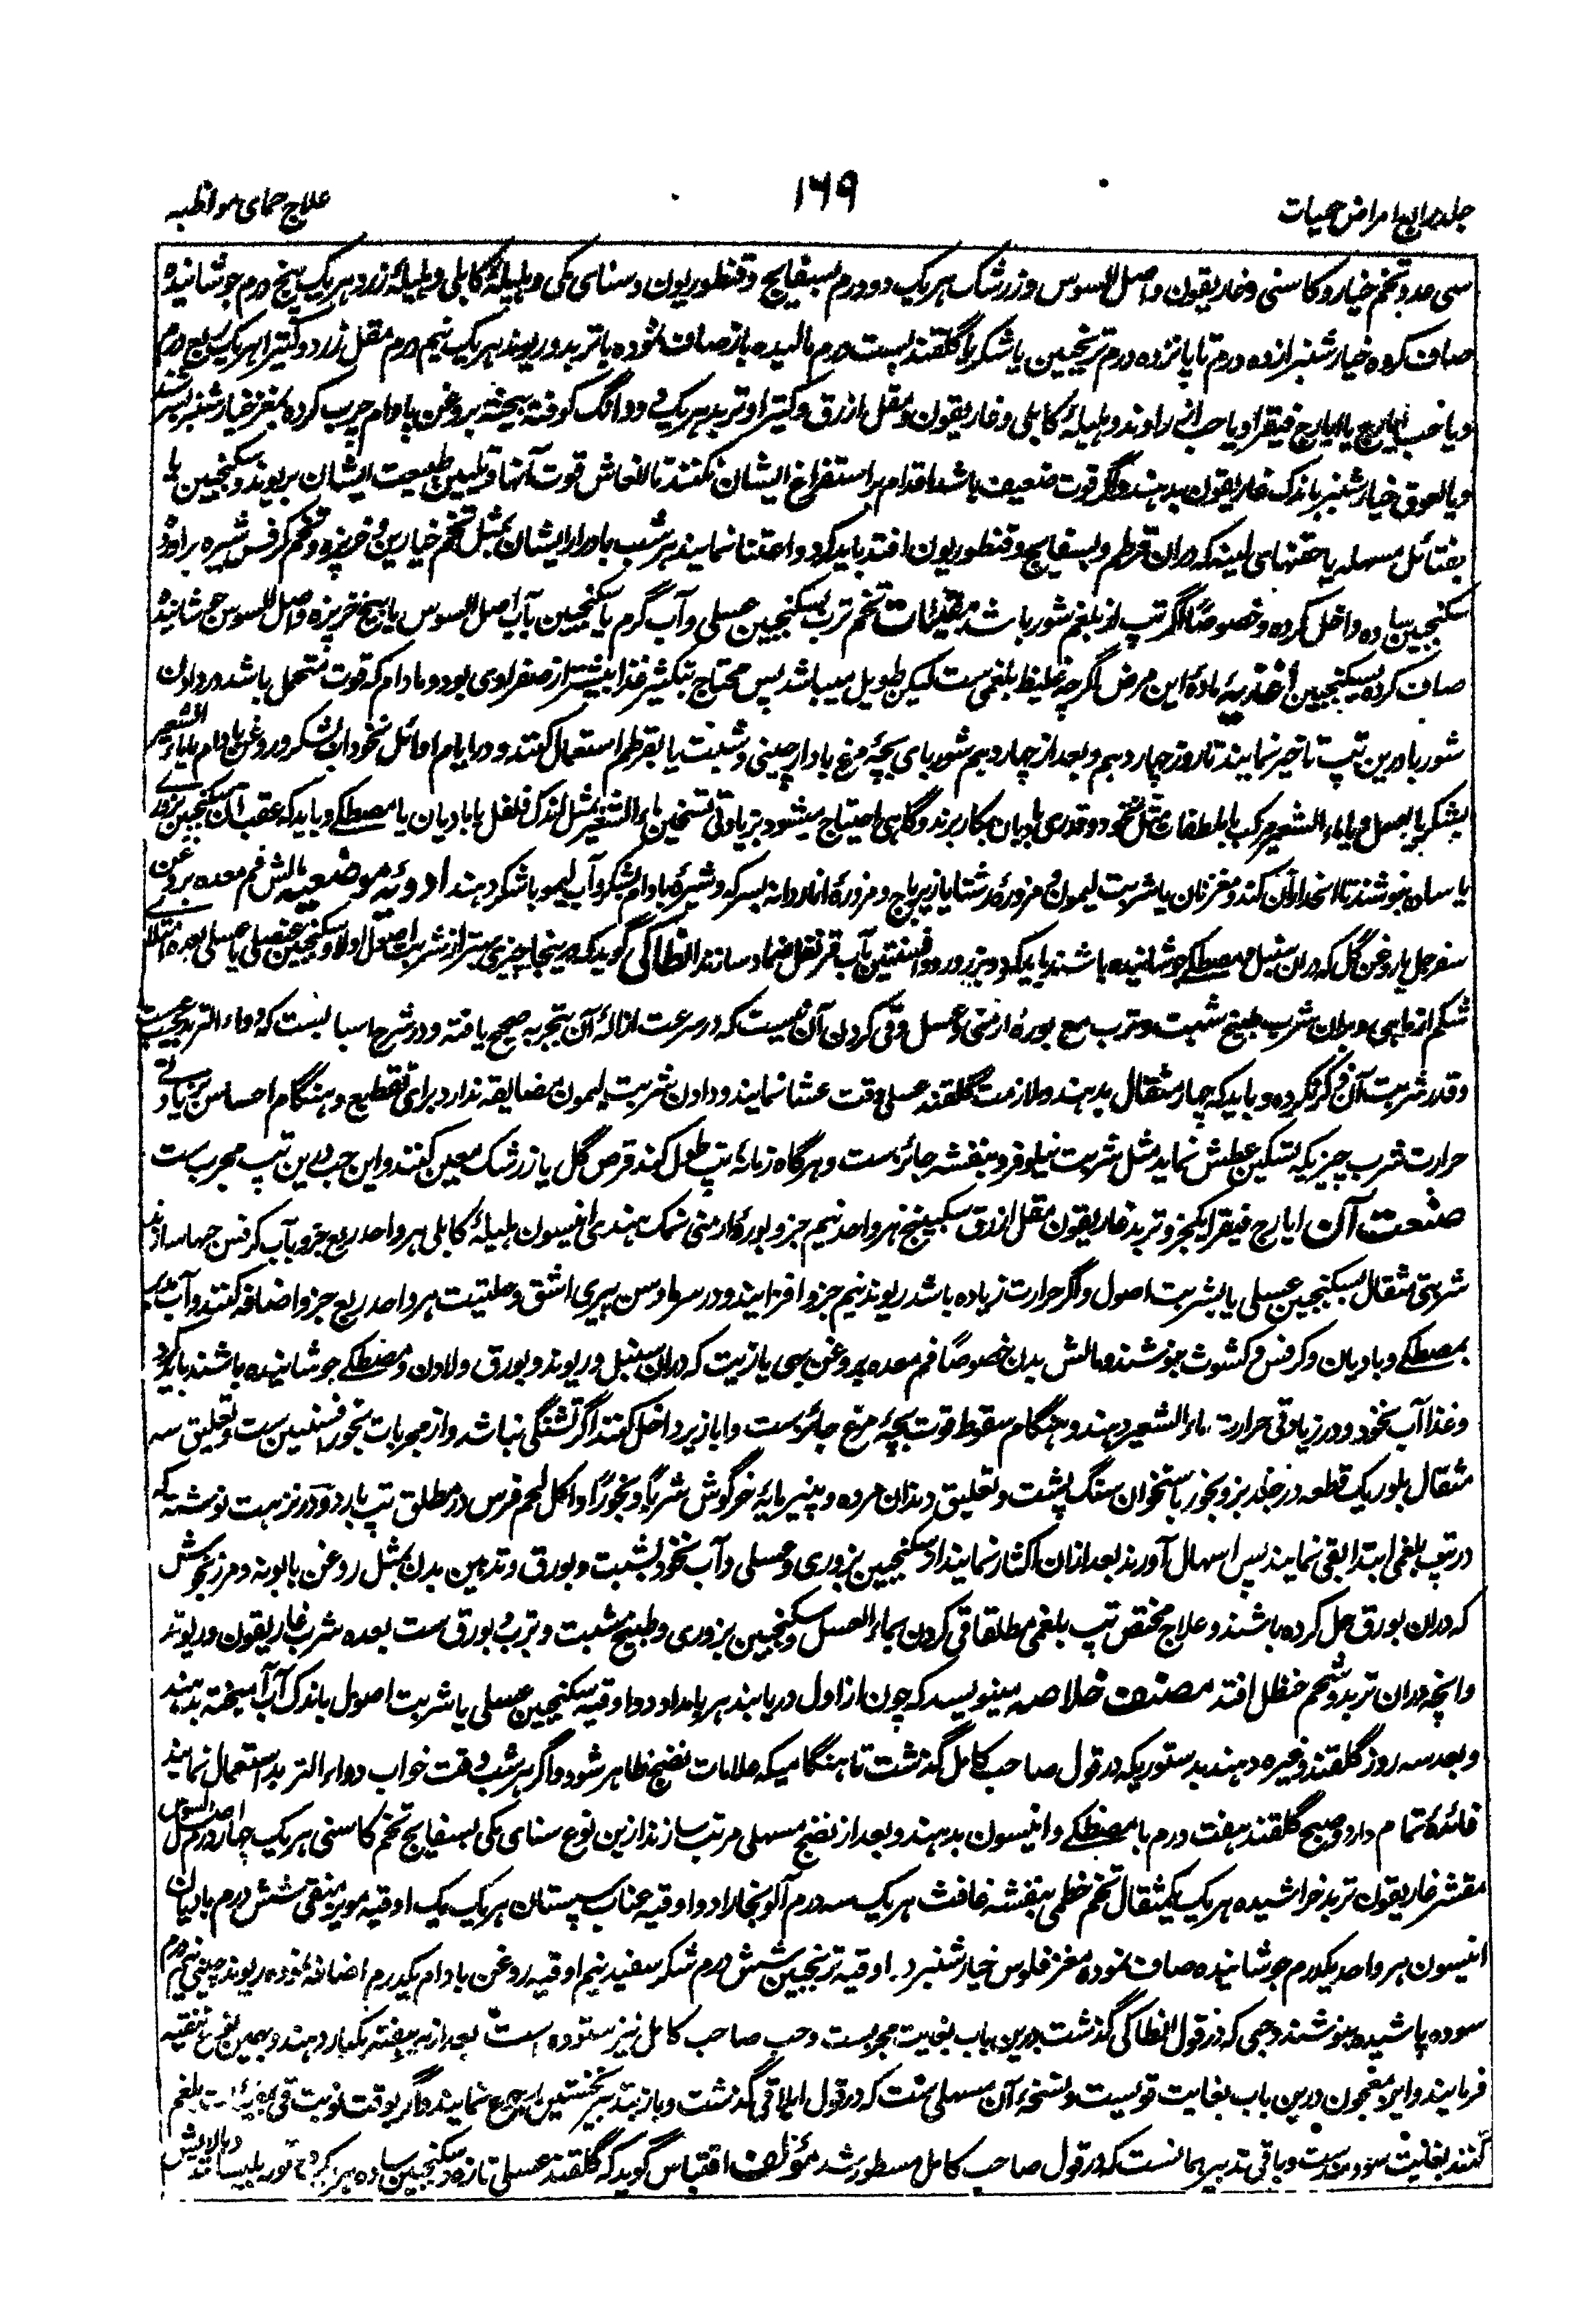 جلد رابع امراض حمیات
۱۶۹
علاج حمای مواظبه
سی عدد و تخم خیار و کاسنی و غاریقون و اصل السوس و زرشک هر یک دو درم بسفایج و قنطوریون و سنای مکی و هلیلهٔ کابلی و هلیلهٔ زرد هر یک پنج درم جوشانیده
صاف کرده خیارشنبر از ده درم تا پانزده درم ترنجبین یا شکر یا گلقند بست درم مالیده باز صاف نموده با تربد و ریوند هر یک نیم درم مقل ازرق و کتیرا هر یک ربع درم
و یا حب ایارج یا ایارج فیقرا و یا حب از راوند و هلیلهٔ کابلی و غاریقون و مقل ازرق و کتیرا و تربد هر یک دو دانگ کوفته بیخته بروغن بادام چرب کرده بمغز خیارشنبر بسرشند
و یا لعوق خیارشنبر باندک غاریقون بدهند و اگر قوت ضعیف باشد اقدام بر استفراغ ایشان نکنند تا انتعاش قوت آنها و تلیین طبیعت ایشان بریوند و سکنجبین یا
بفتائل مسهله یا حقنهای لینه که دران قرطم و بسفایج و قنطوریون افتد باید کرد و اعتنا نمایند هر شب بادرار ایشان بمثل تخم خیارین و خرپزه و تخم کرفس شیره برآورده
سکنجبین ساده داخل کرده و خصوصاً اگر تپ از بلغم شور باشد مقیئات تخم ترب بسکنجبین عسلی و آب گرم یا سکنجبین بآب اصل السوس یا بیخ خرپزه و اصل السوس جوشانیده
صاف کرده بسکنجبین اغذیه مادهٔ این مرض اگرچه غلیظ بلغمی ست لیکن طویل میباشد پس محتاج بتکثیر غذا بیشتر از صفراوی بود و مادام که قوت متحمل باشد در دادن
شوربا درین تپ تاخیر نمایند تا روز چهاردهم و بعد از چهاردهم شوربای بچهٔ مرغ با دارچینی و شبت یا بقرطم استعمال کنند و در ایام اوائل نخوداب بشکر و روغن بادام یا ماء الشعیر
بشکر یا بعسل و یا ماء الشعیر مرکب با ملطفات مثل نخود و قدری بادیان بکار برند و گاهی احتیاج میشود بزیادتی تسخین ماء الشعیر بمثل اندک فلفل یا بادیان یا مصطکی و باید که عقب آن سکنجبین بزوری
یا ساده بنوشند تا انحدار آن کند و مغز نان با شربت لیمون و مزورهٔ رشتا یا زیرباج و مزورهٔ اناردانه بسرکه و شیرهٔ بادام بشکر و آب لیمو با شکر دهند ادویهٔ موضعیه مالش فم معده بروغن
سفرجل یا روغن گل که دران سنبل و مصطکی جوشانیده باشند باید کرد و نیز ورد و افسنتین بآب قرنفل ضماد سازند انطاکی گوید که درینجا چیزی بهتر از شربت اصول اولا و سکنجبین عنصلی یا عسلی بعده امتلاء
شکم از ماهی و بران شرب طبیخ شبت و ترب مع بورهٔ ارمنی و عسل و قی کردن آن نیست که در سرعت ازالهٔ آن بتجربه صحیح یافته و در شرح اسباب ست که دواء التربد عجیب ست
و قدر شربت آن ذکر نکرده و باید که چهار مثقال بدهند و ملازمت گلقند عسلی وقت عشا نمایند و دادن شربت لیمون مضایقه ندارد برای تقطیع و هنگام احساس بزیادتی
حرارت شرب چیزیکه تسکین عطش نماید مثل شربت نیلوفر و بنفشه جائز ست و هرگاه زمانهٔ تپ طول کند قرص گل یا زرشک معین کنند و این حب درین تپ مجرب ست
صنعت آن ایارج فیقرا یکجزو تربد غاریقون مقل ازرق سکبینج هر واحد نیم جزو بورهٔ ارمنی نمک هندی انیسون هلیلهٔ کابلی هر واحد ربع جزو بآب کرفس حبها سازند
شربتی مثقال بسکنجبین عسلی یا بشربت اصول و اگر حرارت زیاده باشد ریوند نیم جزو افزایند و در سرما و سن پیری اشق و حلتیت هر واحد ربع جزو اضافه کنند و آب
بمصطکی و بادیان و کرفس و کشوث بنوشند و مالش بدان خصوصاً فم معده بروغن بهی یا زیت که دران سنبل و ریوند و بورق و لادن و مصطکی جوشانیده باشند باید کرد
و غذا آب نخود و در زیادتی حرارت ماء الشعیر دهند و هنگام سقوط قوت بچهٔ مرغ جائز ست و ابازیر داخل کنند اگر تشنگی نباشد و از مجربات بخور افسنتین ست و تعلیق سه
مثقال بلور یک قطعه در جلد بز و بخور باستخوان سنگ پشت و تعلیق دندان مرده و پنیرمایهٔ خرگوش شرباً و بخوراً و اکل لحم فرس در مطلق تپ بارد و در نزهت نوشته که
در تپ بلغمی ابتدا بقی نمایند پس اسهال آورند بعد ازان اکثار نمایند از سکنجبین بزوری و عسلی و آب نخود بشبت و بورق و تدهین بدن بمثل روغن بابونه و مرزنجوش
که دران بورق حل کرده باشند و علاج مختص تپ بلغمی مطلقا قی کردن بماء العسل و سکنجبین بزوری و طبیخ شبت و ترب و بورق ست بعده شرب غاریقون و ریوند
و آنچه دران تربد و شحم حنظل افتد مصنف خلاصه مینویسد که چون از اول دریابند هر بامداد دو اوقیه سکنجبین عسلی یا شربت اصول باندک آب آمیخته بدهند
و بعد سه روز گلقند و غیره دهند بدستوریکه در قول صاحب کامل گذشت تا هنگامیکه علامات نضج ظاهر شود و اگر هر شب وقت خواب دواء التربد استعمال نمایند
فائدهٔ تمام دارد و صبح گلقند هفت درم با مصطکی و انیسون بدهند و بعد از نضج مسهلی مرتب سازند ازین نوع سنای مکی بسفایج تخم کاسنی هر یک چهار درم اصل السوس
مقشر غاریقون تربد خراشیده هر یک یکمثقال تخم خطمی بنفشه غافث هر یک سه درم آلو بخارا دو اوقیه عناب سپستان هر یک یک اوقیه مویز منقی شش درم بادیان
انیسون هر واحد یکدرم جوشانیده صاف نموده مغز فلوس خیارشنبر دو اوقیه ترنجبین شش درم شکر سفید نیم اوقیه روغن بادام یکدرم اضافه نموده ریوند چینی نیم درم
سوده پاشیده بنوشند و حبی که در قول انطاکی گذشت درین باب بغایت مجربست و حب صاحب کامل نیز ستوده است بعد از هر هفته یکبار دهند و بهمین نوع تنقیه
فرمایند و این معجون درین باب بغایت قویست و نسخهٔ آن مسهلی ست که در قول ایلاقی گذشت و باز بتدبیر نخستین رجوع نمایند و اگر بوقت نوبت قی بمقیئات بلغم
کنند بغایت سودمند ست و باقی تدبیر همانست که در قول صاحب کامل مسطور شد مؤلف اقتباس گوید که گلقند عسلی تازه و سکنجبین ساده